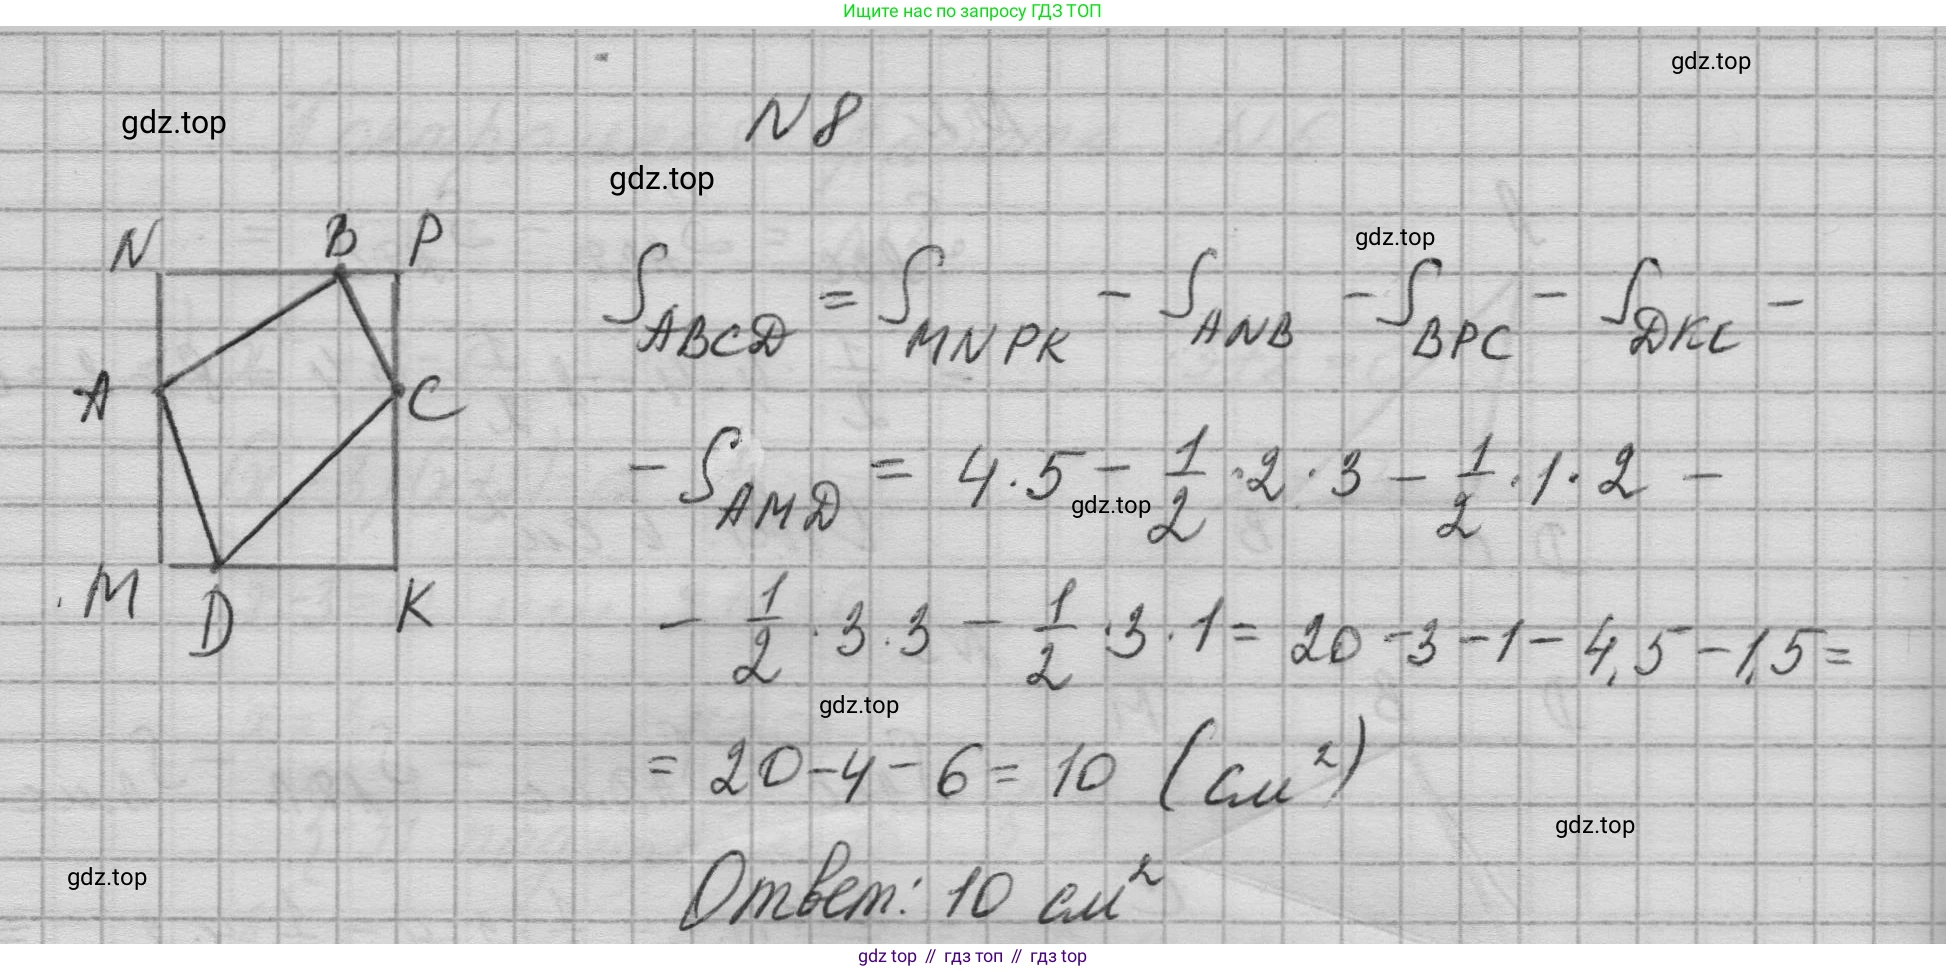 Ищите нас по запросу ГДЗ ТОП
gdz.top
gdz.top
N 8
gdz.top
gdz.top
N B P
A C
M D K
S_ABCD = S_MNPK - S_ANB - S_BPC - S_DKC -
- S_AMD = 4·5 - 1/2·2·3 - 1/2·1·2 -
gdz.top
- 1/2·3·3 - 1/2·3·1 = 20 - 3 - 1 - 4,5 - 1,5 =
gdz.top
= 20 - 4 - 6 = 10 (см²)
gdz.top
gdz.top
Ответ: 10 см²
gdz top // гдз топ // gdz top